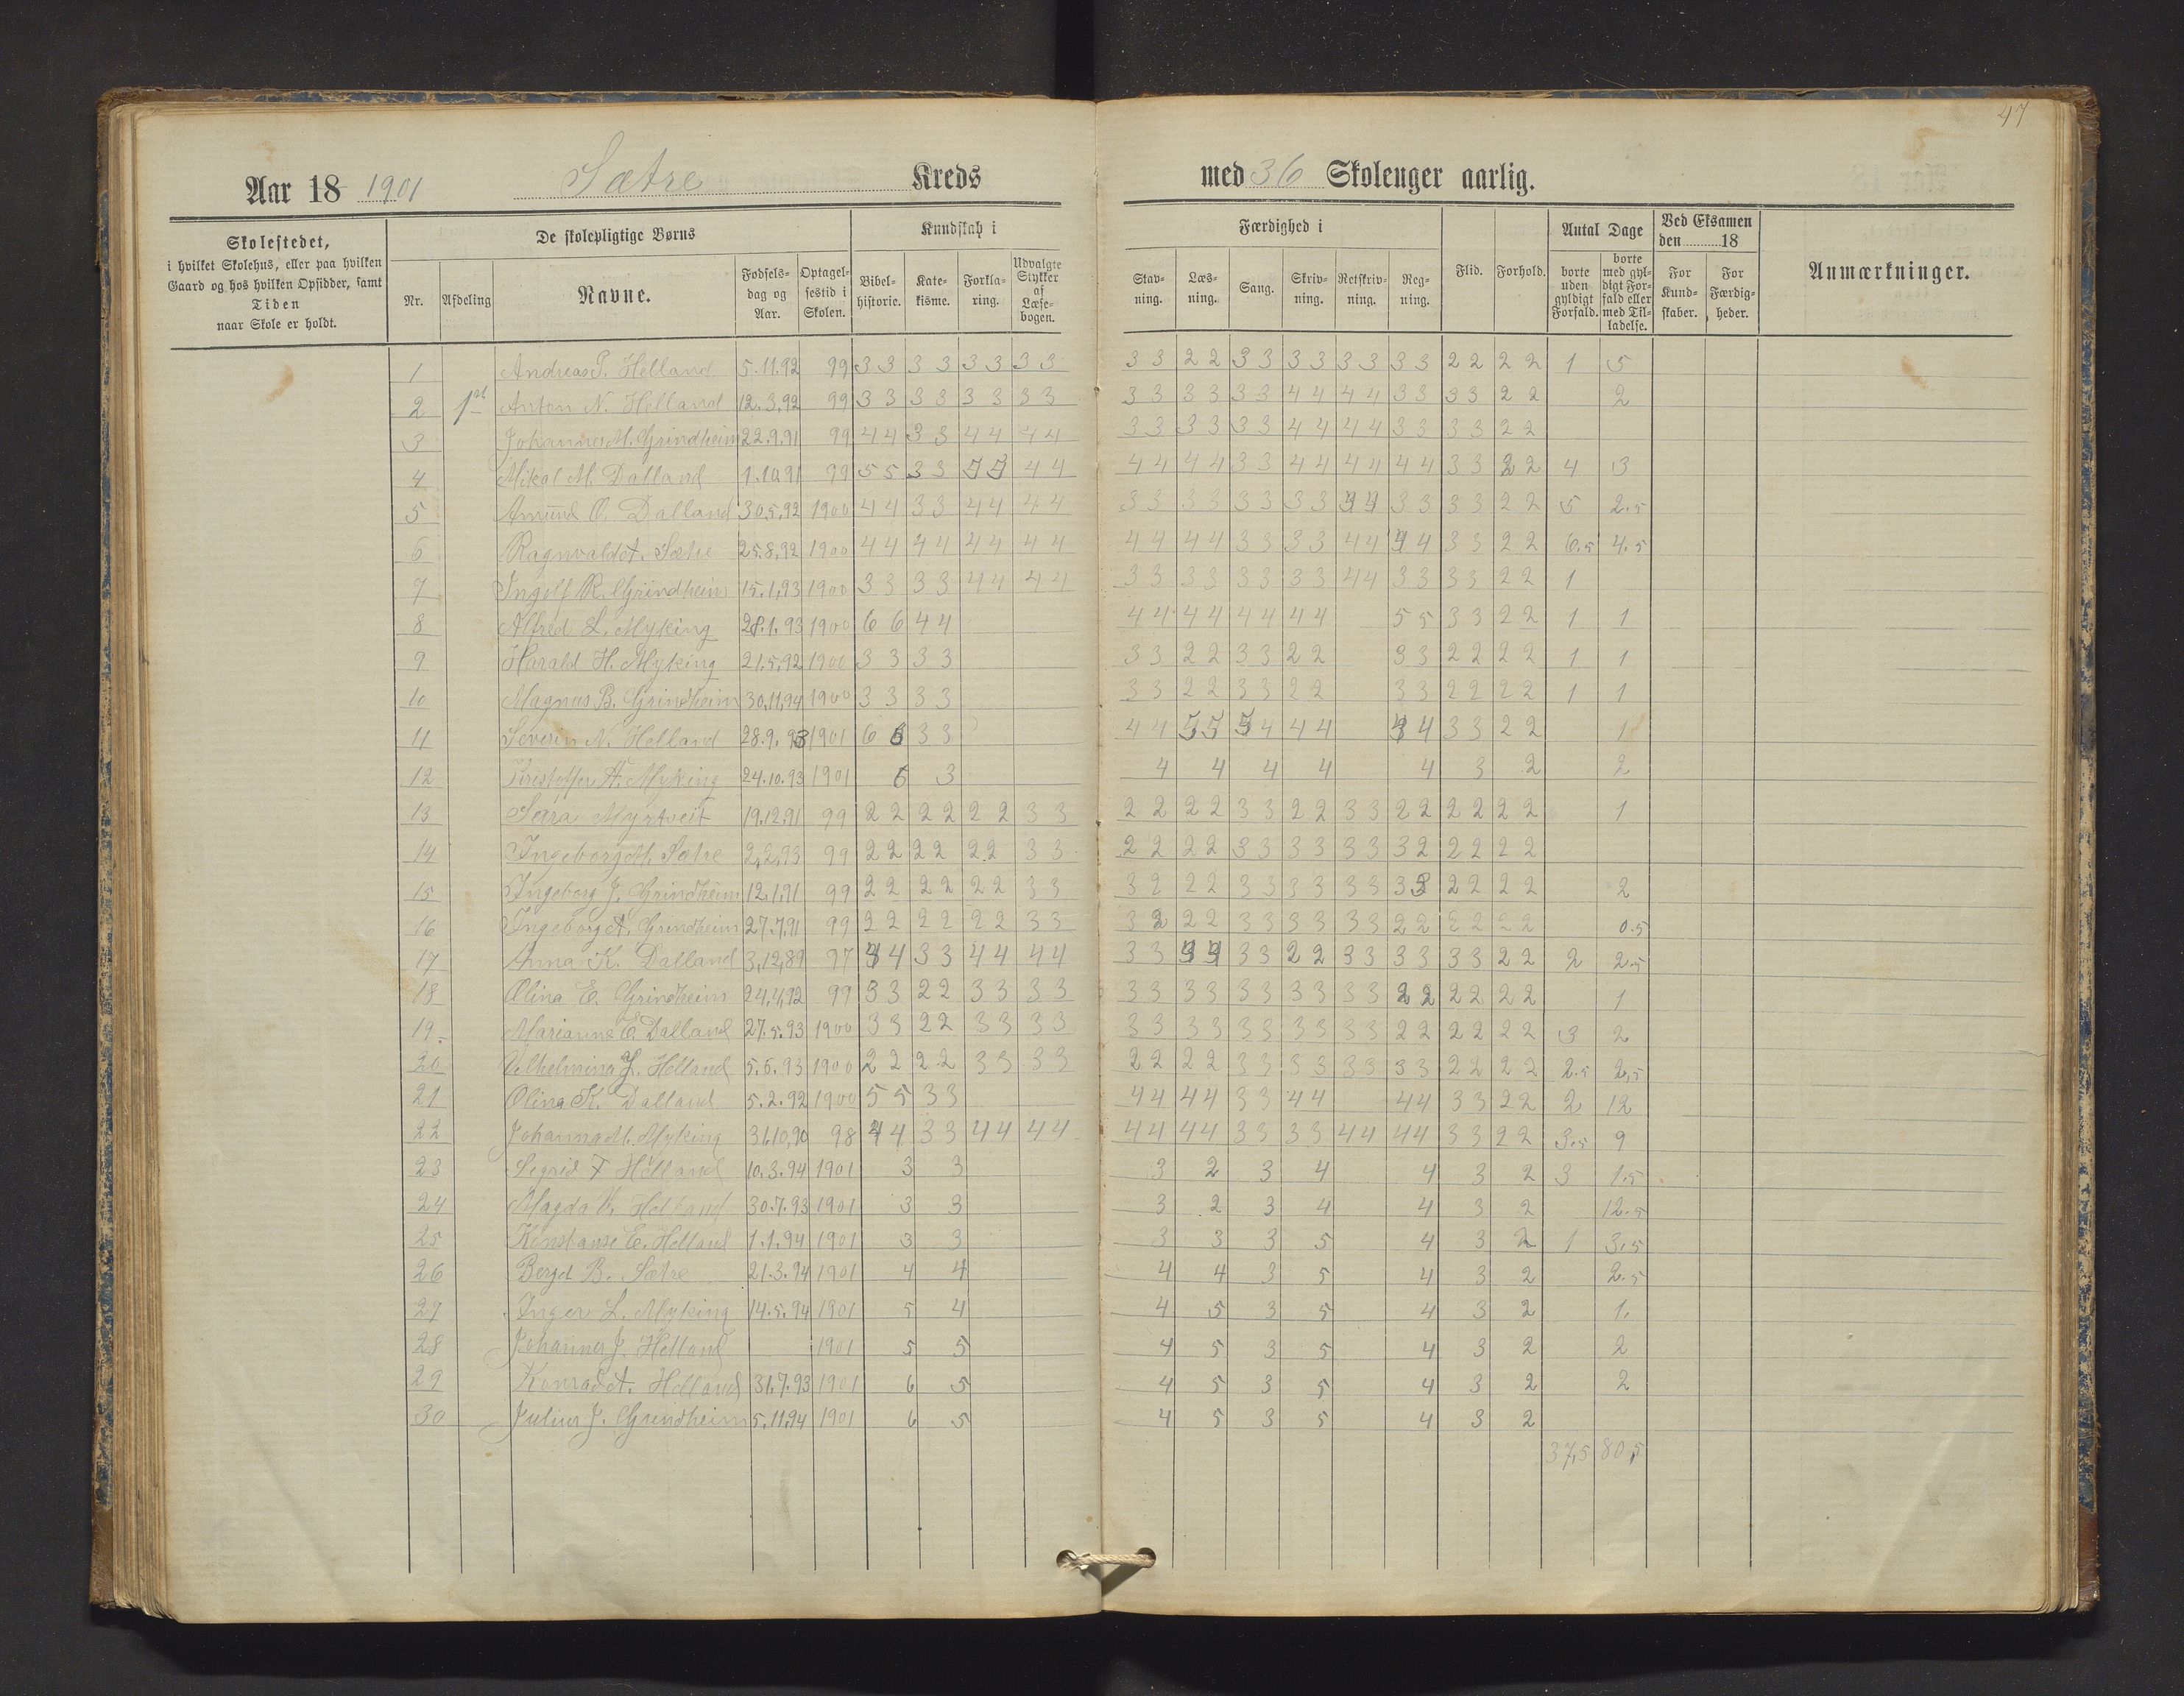 47
Aar 18 1901 Sætre Kreds med 36 Skoleuger aarlig.
Skolestedet, i hvilket Skolehus, eller paa hvilken Gaard og hos hvilken Opsidder, samt Tiden naar Skole er holdt.
De skolepligtige Børns
Nr. Afdeling Navne. Fødselsdag og Aar. Optagelsestid i Skolen.
Kundskab i
Bibelhistorie. Katekisme. Forklaring. Udvalgte Stykker af Læsebogen.
Færdighed i
Stavning. Læsning. Sang. Skrivning. Retskrivning. Regning. Flid. Forhold.
Antal Dage
borte uden gyldigt Forfald. borte med gyldigt Forfald eller med Tilladelse.
Ved Eksamen den 18
For Kundskaber. For Færdigheder.
Anmærkninger.
1 Andreas P. Helland 5.11.92 99 3 3 3 3 3 3 3 3 3 3 2 2 3 3 3 3 3 3 3 3 2 2 2 2 1 5
2 1ste Anton N. Helland 12.3.92 99 3 3 3 3 3 3 3 3 3 3 3 3 3 3 4 4 4 4 3 3 3 3 2 2 2
3 Johannes M. Grindheim 22.9.91 99 4 4 3 3 4 4 4 4 3 3 3 3 3 3 4 4 4 4 3 3 3 3 2 2
4 Mikal M. Dalland 1.10.91 99 5 5 3 3 5 5 4 4 4 4 4 4 3 3 4 4 4 4 4 4 3 3 2 2 4 3
5 Amund O. Dalland 30.5.92 1900 4 4 3 3 4 4 4 4 3 3 3 3 3 3 3 3 4 4 3 3 3 3 2 2 5 2.5
6 Ragnvald A. Sætre 25.8.92 1900 4 4 4 4 4 4 4 4 4 4 4 4 3 3 3 3 4 4 4 4 3 3 2 2 6.5 4.5
7 Ingolf R. Grindheim 15.1.93 1900 3 3 3 3 4 4 4 4 3 3 3 3 3 3 3 3 4 4 3 3 3 3 2 2 1
8 Alfred L. Myking 28.1.93 1900 6 6 4 4 4 4 4 4 4 4 4 4 5 5 3 3 2 2 1 1
9 Harald H. Myking 21.5.92 1900 3 3 3 3 3 3 2 2 3 3 2 2 3 3 2 2 2 2 1 1
10 Magnus B. Grindheim 30.11.94 1900 3 3 3 3 3 3 2 2 3 3 2 2 3 3 2 2 2 2 1 1
11 Severin N. Helland 28.9.93 1901 6 6 3 3 4 4 5 5 3 4 4 4 4 4 3 3 2 2 1
12 Kristoffer A. Myking 24.10.93 1901 6 3 4 4 4 4 4 3 2 2
13 Sara Myrtveit 19.12.91 99 2 2 2 2 2 2 3 3 2 2 2 2 3 3 2 2 3 3 2 2 2 2 2 2 1
14 Ingeborg M. Sætre 2.2.93 99 2 2 2 2 2 2 3 3 2 2 2 2 3 3 3 3 3 3 3 2 2 2 2 2
15 Ingeborg J. Grindheim 12.1.91 99 2 2 2 2 2 2 3 3 3 2 2 2 3 3 3 3 3 3 3 3 2 2 2 2 2
16 Ingeborg A. Grindheim 27.7.91 99 2 2 2 2 2 2 3 3 3 2 2 2 3 3 3 3 3 3 2 2 2 2 2 2 0.5
17 Anna K. Dalland 3.12.89 97 4 4 3 3 4 4 4 4 3 3 3 3 2 2 3 3 3 3 3 3 2 2 2 2.5
18 Olina E. Grindheim 24.4.92 99 3 3 2 2 3 3 3 3 3 3 3 3 3 3 3 3 3 3 2 2 2 2 2 2 1
19. Marianne E. Dalland 27.5.93 1900 3 3 2 2 3 3 3 3 3 3 3 3 3 3 3 3 3 3 2 2 2 2 2 2 3 2
20 Vilhelmina L. Helland 5.6.93 1900 2 2 2 2 3 3 3 3 2 2 2 2 3 3 3 3 3 3 3 3 2 2 2 2 2.5 2.5
21 Olina K. Dalland 5.2.92 1900 5 5 3 3 4 4 4 4 3 3 4 4 4 4 3 3 2 2 2 12
22 Johanna M. Myking 31.10.90 98 4 4 3 3 4 4 4 4 4 4 4 4 3 3 3 3 4 4 4 4 3 3 2 2 3.5 9
23 Sigrid T Helland 10.3.94 1901 3 3 3 2 3 4 4 3 2 3 1.5
24 Magda Helland 30.7.93 1901 3 3 3 2 3 4 4 3 2 12.5
25 Konstanse E. Helland 1.1.94 1901 3 3 3 3 3 5 4 3 2 1 3.5
26 Berget B. Sætre 21.3.94 1901 4 4 4 4 3 5 4 3 2 2.5
27 Inger L. Myking 14.5.94 1901 5 4 4 5 3 5 4 3 2 1.
28 Johannes J. Helland 1901 5 5 4 5 3 5 4 3 2 2
29 Konrad A. Helland 31.7.93 1901 6 5 4 5 3 5 4 3 2 2
30 Julius J. Grindheim 5.11.94 1901 6 5 4 5 3 5 4 3 2
37,5 80,5